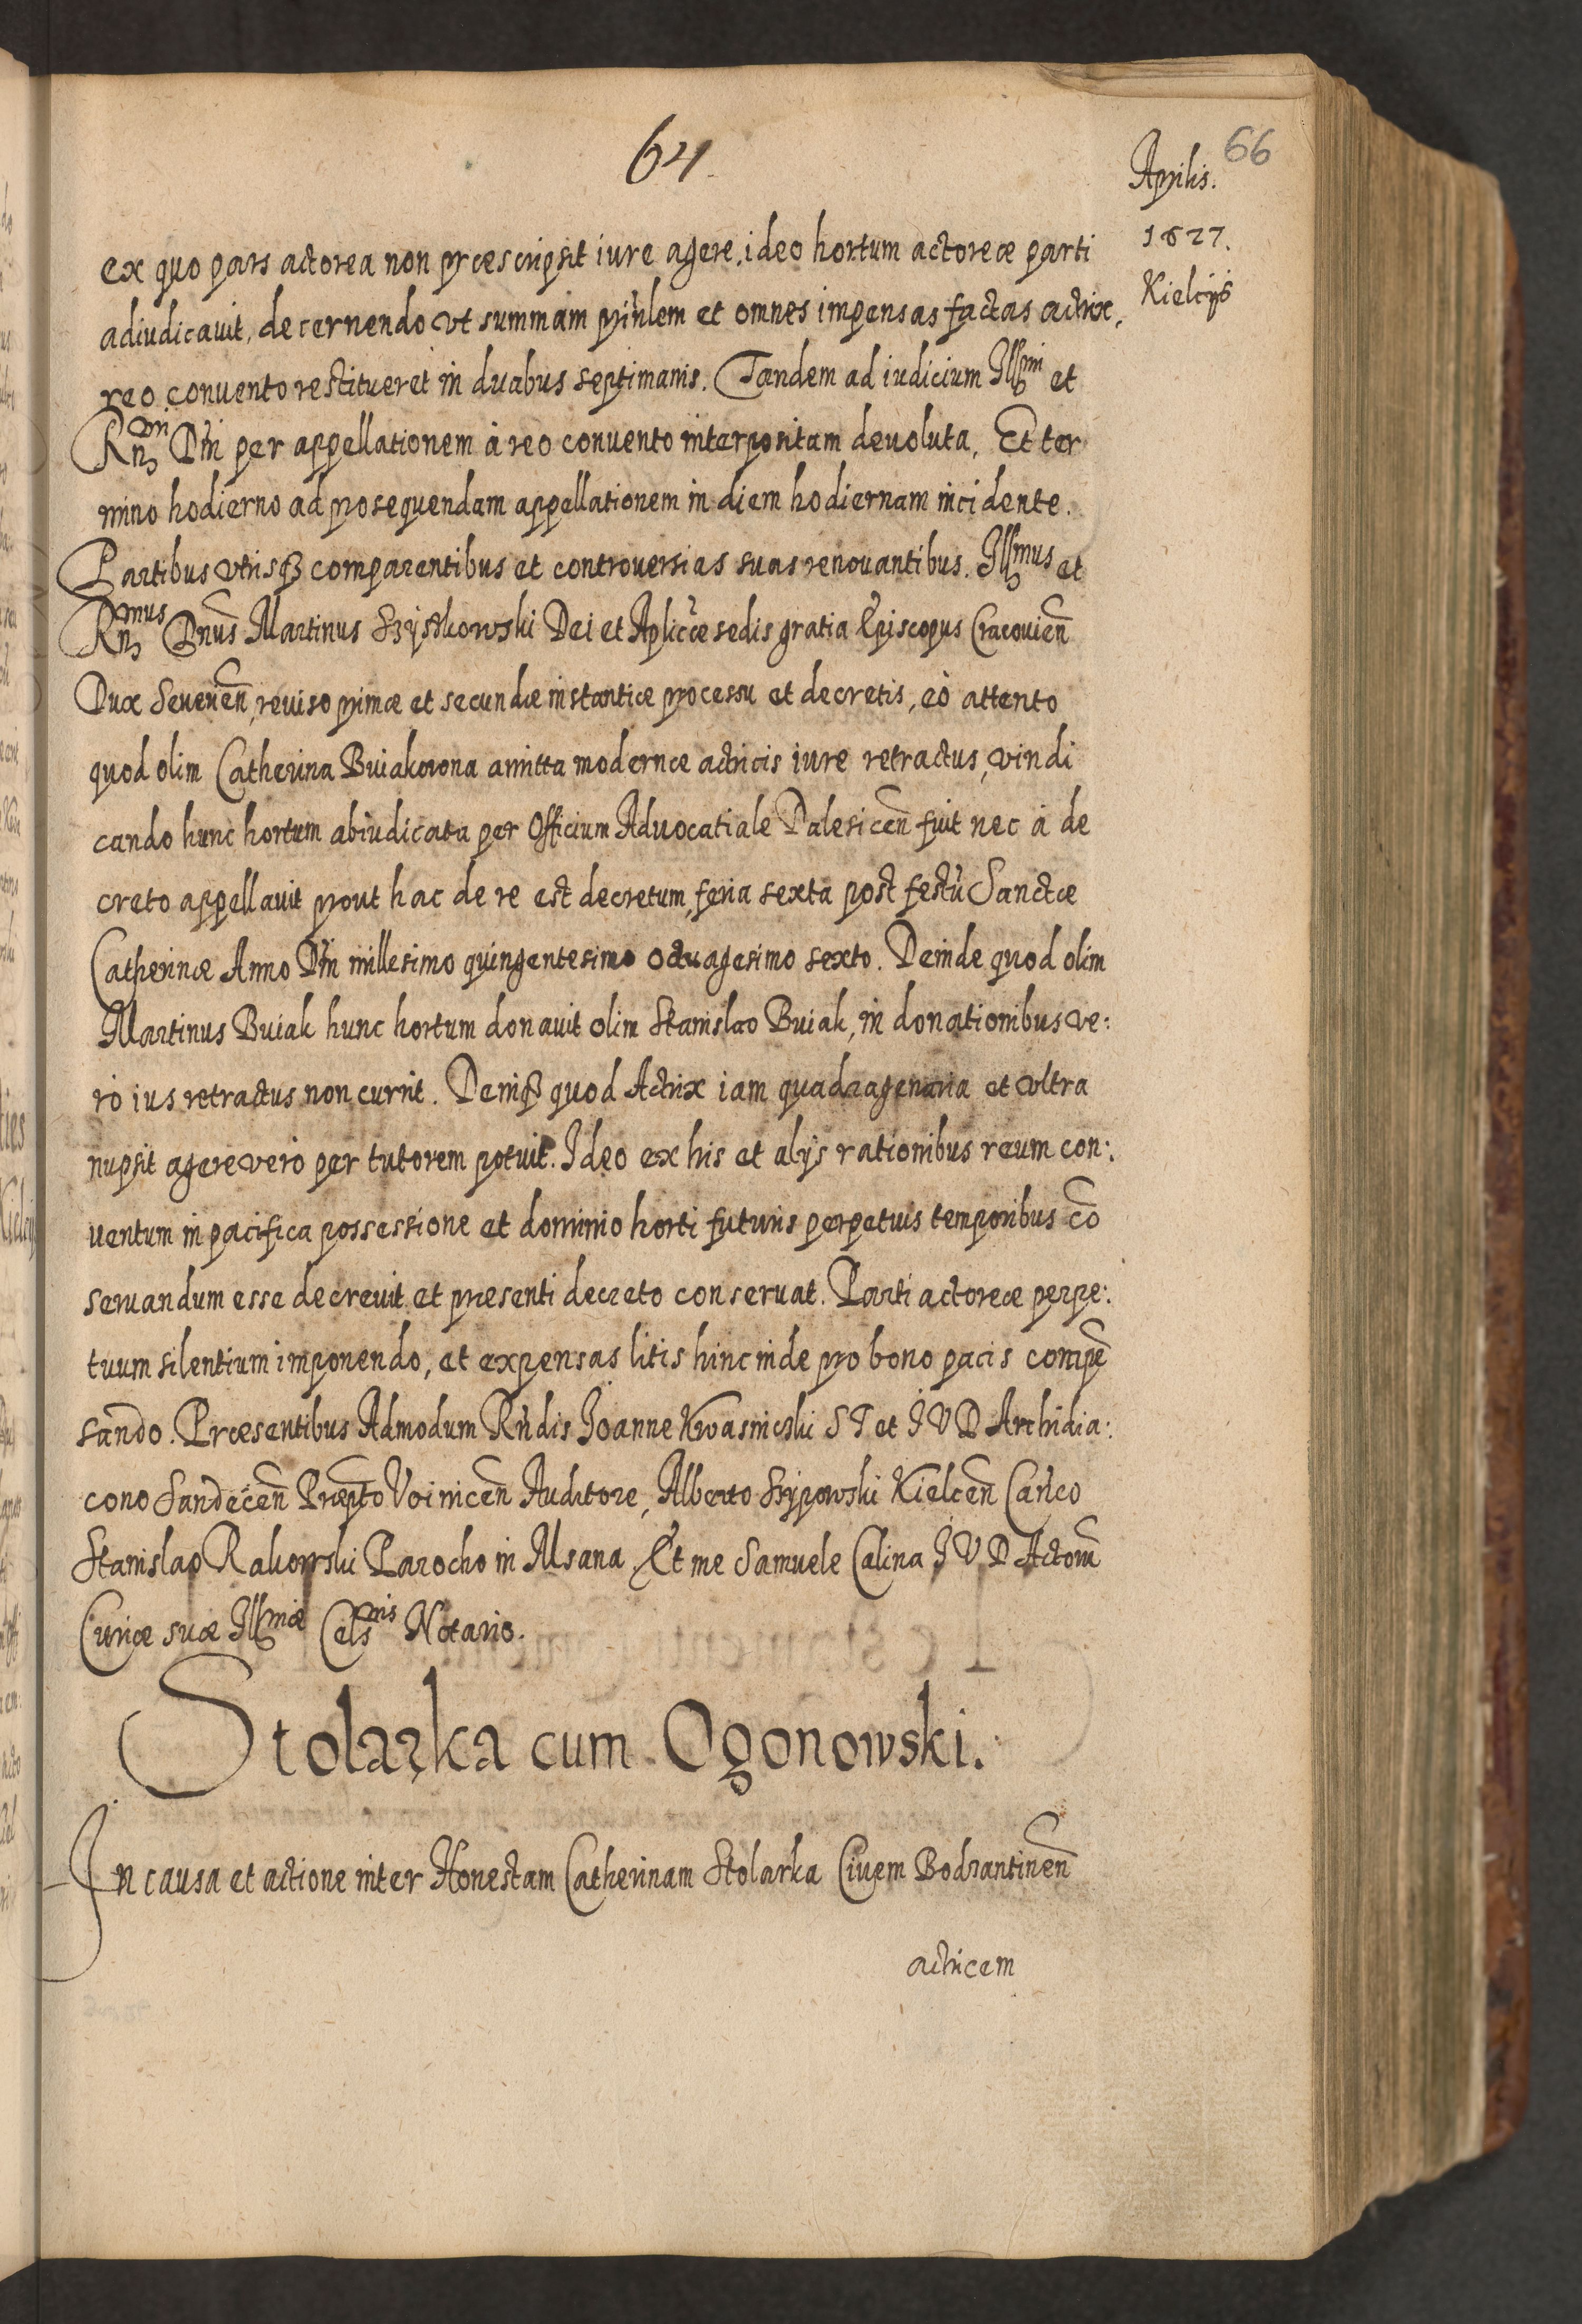 64
66
Aprilis.
1627.
Kielcijs
ex quo pars actorea non præscripsit iure agere, ideo hortum actoreæ parti
adiudicauit, decernendo vt summam prin̄lem et omnes impensas factas actrix,
reo convento restitueret in duabus septimanis. Tandem ad iudicium Illmi et
Rndmi Dn̄i per appellationem à reo conuento interpositam deuoluta, Et ter
mino hodierno ad prosequendam appellationem in diem hodiernam incidente.
Partibus vtrisqꝫ comparentibus et controuersias suas renouantibus. Illmus et
Rndmus Dnūs Martinus Szyszkowski Dei et Aplicæ sedis gratia Episcopus Cracouien̄
Dux Seuerien̄, reuiso primæ et secundæ instantiæ processu et decretis, eò attento
quod olim Catherina Buiakowna amitta modernæ actricis iure retractus, vindi
cando hunc hortum abiudicata per Officium Aduocatiale Dalesicen̄ fuit nec à de
creto appellauit prout hac de re est decretum, feria sexta post festū Sanctæ
Catherinæ Anno Dn̄i millesimo quingentesimo octuagesimo sexto. Deinde quod olim
Martinus Buiak hunc hortum donauit olim Stanislao Buiak, in donationibus ve:
rò ius retractus non currit. Deniqꝫ quod Actrix iam quadragenaria et vltra
nupsit agere verò per tutorem potuit. Ideo ex his et alijs rationibus reum con:
uentum in pacifica possessione et dominio horti futuris perpetuis temporibus cō
seruandum esse decreuit et præsenti decreto conseruat. Parti actoreæ perpe:
tuum silentium imponendo, et expensas litis hinc inde pro bono pacis compē
sando. Præsentibus Admodum Rn̄dis Joanne Kwasnicski S T et J V D Archidia:
cono Sandecen̄ Præpto Voinicen̄ Auditore, Alberto Szypowski Kielcen̄ Can̄co
Stanislao Rakowski Parocho in Msana Et me Samuele Calina J V D Actorū
Curiæ suæ Illmæ Celsnis Notario.
Stolarka cum Ogonowski.
In causa et actione inter Honestam Catherinam Stolarka Ciuem Bodzantinen̄
actricem